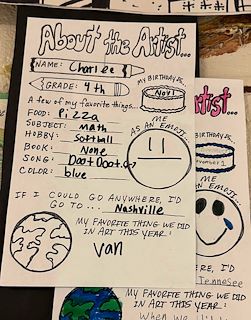 About the Artist...
NAME: Charlee
MY BIRTHDAY IS
Nov 1
GRADE: 4th
A few of my favorite things...
FOOD: Pizza
SUBJECT: math
HOBBY: Softball
BOOK: None
SONG:
COLOR: blue
ME
AS AN EMOJI...
IF I COULD GO ANYWHERE, I'D
GO TO... Nashville
MY FAVORITE THING WE DID
IN ART THIS YEAR!
van
tist...
MY BIRTHDAY IS
ME
AN EMOJI...
I'D
MY FAVORITE THING WE DID
IN ART THIS YEAR!
When we